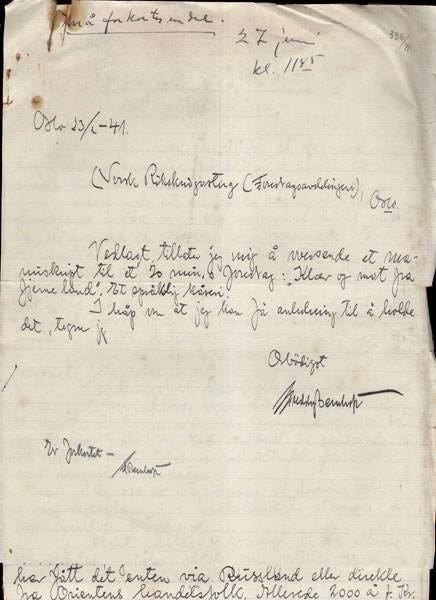 må forkortes endel.
27 juni
kl. 11 45
Oslo 23/ -41.
(Norsk Rikskringkasting (Foredragsavdelingen),
Oslo.
Vedlagt tillater jeg mig å oversende et ma-
nuskript til et 20 min,s foredrag: "Klær og mot fra
fjerne land", Et språklig
I håp om at jeg kan få anledning til å holde
det, tegner jeg
Ærbödigst
Er forkortet –
har fått det enten via Russland eller direkte
fra Orientens handelsfolk. Allerede 2000 å f. Kr.